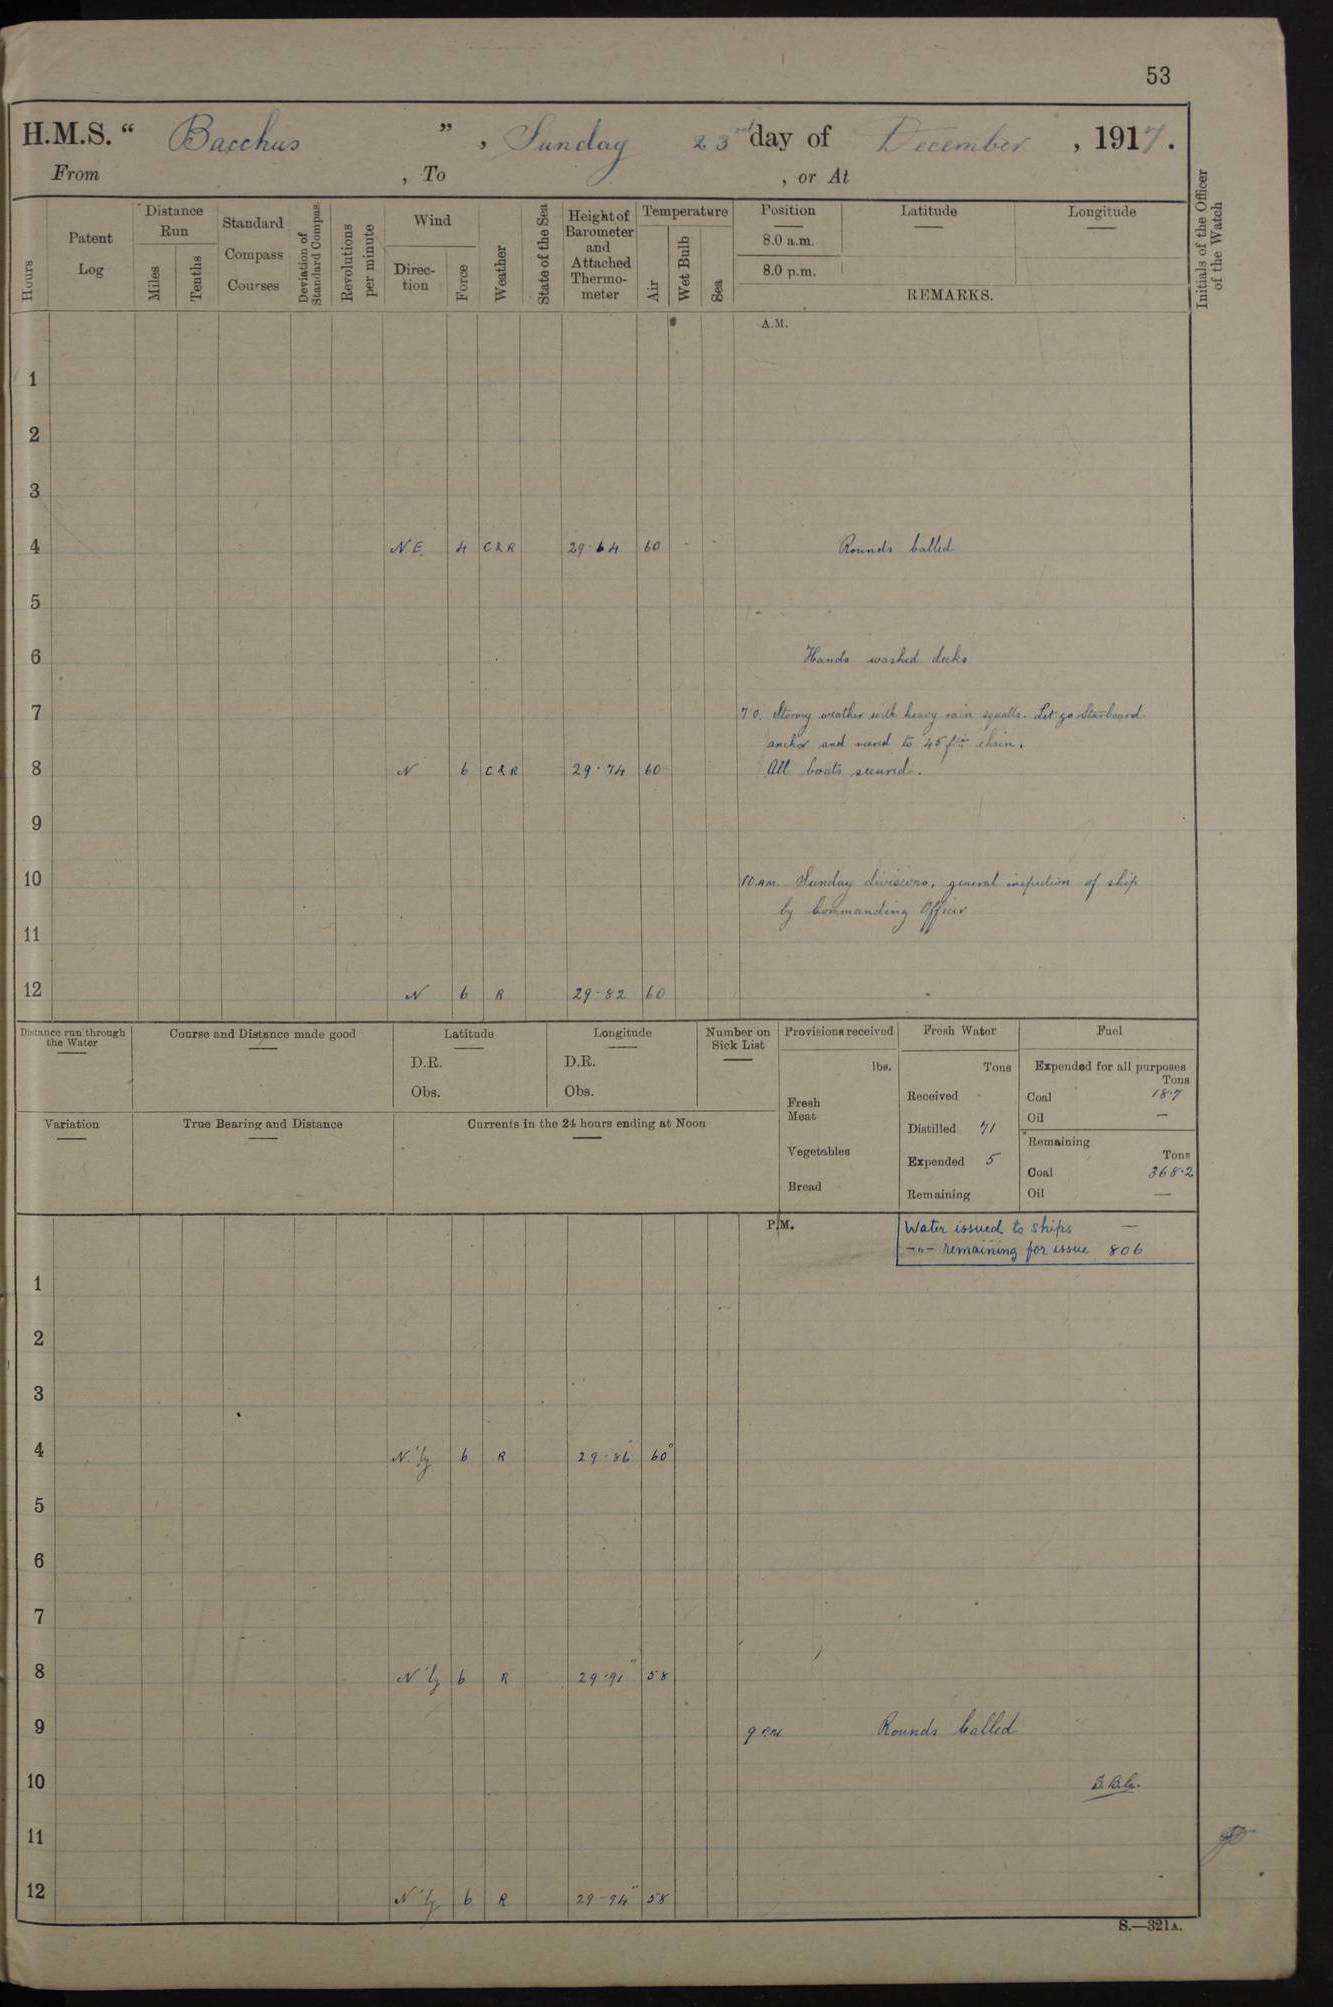 53
H.M.S. “ Bacchus ” , Sunday 23rd day of December , 1917.
From , To , or At
Hours
Patent Log
Distance Run
Miles
Tenths
Standard Compass Courses
Deviation of Standard Compass
Revolutions per minute
Wind
Direc- tion
Force
Weather
State of the Sea
Height of Barometer and Attached Thermo- meter
Temperature
Air
Wet Bulb
Sea
Position
8.0 a.m.
8.0 p.m.
Latitude
Longitude
REMARKS.
Initials of the Officer of the Watch
A.M.
1
2
3
4 N.E. 4 C & R 29·64 60 Rounds Called
5
6 Hands washed decks
7 7 0. Stormy weather with heavy rain squalls. Let go Starboard
anchor and veered to 45 fms chain.
8 N 6 C & R 29·74 60 All boats secured.
9
10 10 AM. Sunday divisions, general inspection of ship
by Commanding Officer
11
12 N 6 R 29-82 60
Distance run through the Water
Course and Distance made good
Latitude
D.R.
Obs.
Longitude
D.R.
Obs.
Number on Sick List
Variation
True Bearing and Distance
Currents in the 24 hours ending at Noon
Provisions received
lbs.
Fresh Meat
Vegetables
Bread
Fresh Water
Tons
Received
Distilled 71
Expended 5
Remaining
Fuel
Expended for all purposes
Tons
Coal 18·7
Oil —
Remaining
Tons
Coal 368·2
Oil —
P.M.
Water issued to ships —
-"- remaining for issue 806
1
2
3
4 N'ly 6 R 29-86 60°
5
6
7
8 N'ly 6 R 29·91 58
9 9 PM Rounds Called
10
11
12 N'ly 6 R 29-94 58
S.—321A.